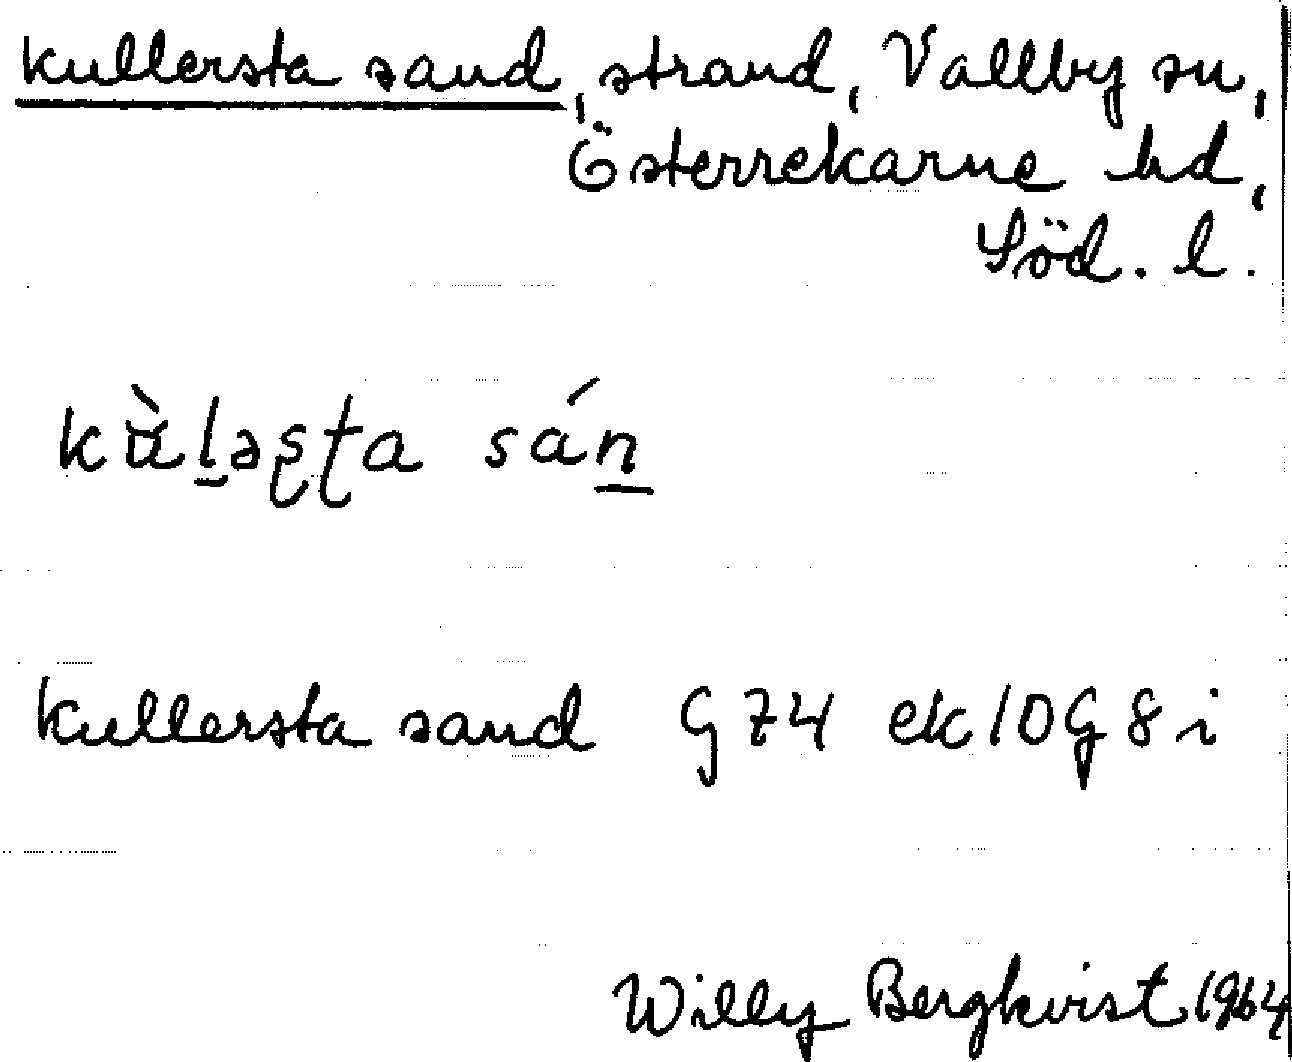 Kullersta sand, strand, Vallby sn,
Österrekarne hd,
Söd. l.
kɑ̀l̠əʂʈa sán̠
Kullersta sand G74 ek 10G 8i
Willy Bergkvist 1964